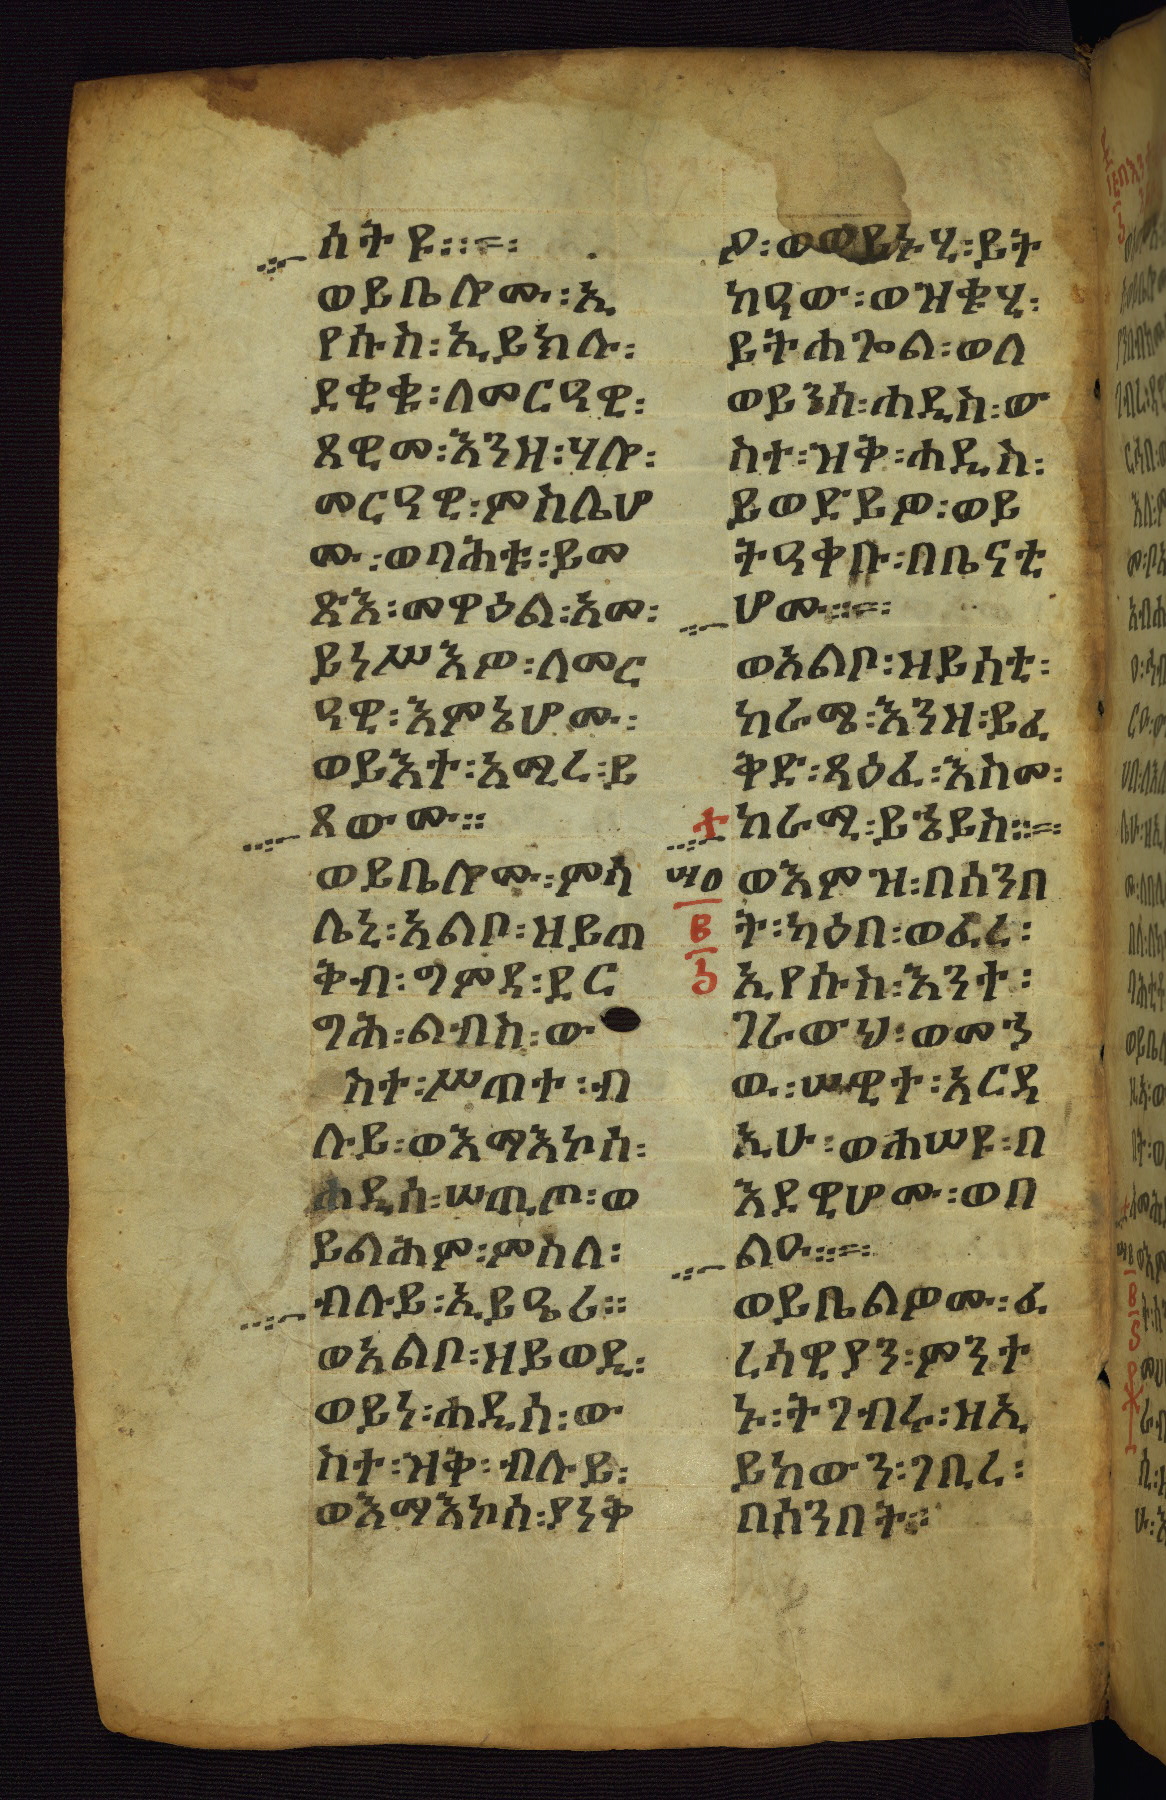 ሰትዩ።=፡
ወይቤሎሙ፡ኢ
የሱስ፡ኢይክሉ፡
ደቂቁ፡ለመርዓዊ፡
ጸዊመ፡እንዘ፡ሃሎ፡
መርዓዊ፡ምስሌሆ
ሙ፡ወባሕቱ፡ይመ
ጽእ፡መዋዕል፡አመ፡
ይነሥእዎ፡ለመር
ዓዊ፡እምኔሆሙ፡
ወይእተ፡አሚረ፡ይ
ጸውሙ።
ወይቤሎሙ፡ምሳ
ሌኒ፡አልቦ፡ዘይጠ
ቅብ፡ግምዳ፡ደር
ግሕ፡ልብስ፡ው
ስተ፡ሥጠተ፡ብ
ሉይ፡ወእማእኮሰ፡
ሐዲስ፡ሠጢጦ፡ወ
ይልሕም፡ምስለ፡
ብሉይ፡ኢይዔሪ።
ወአልቦ፡ዘይወዲ፡
ወይነ፡ሐዲሰ፡ው
ስተ፡ዝቅ፡ብሉይ፡
ወእማእኮሰ፡ያነቅ
ዖ፡ወወይኑሂ፡ይት
ከዓው፡ወዝቁሂ፡
ይትሐጐል፡ወለ
ወይንሰ፡ሐዲስ፡ው
ስተ፡ዝቅ፡ሐዲስ፡
ይወድይዎ፡ወይ
ትዓቀቡ፡በቤናቲ
ሆሙ።=፡
ወአልቦ፡ዘይሰቲ፡
ከራሜ፡እንዘ፡ይፈ
ቅድ፡ጻዕፈ፡እስመ፡
ከራሚ፡ይኄይስ።=፡
ወእምዝ፡በሰንበ
ት፡ካዕበ፡ወፈረ፡
ኢየሱስ፡እንተ፡
ገራውህ፡ወመን
ወ፡ሠዊተ፡አርዳ
ኢሁ፡ወሐሠዩ፡በ
እደዊሆሙ፡ወበ
ልዑ።=፡
ወይቤልዎሙ፡ፈ
ሪሳዊያን፡ምንተ
ኑ፡ትገብሩ፡ዘኢ
ይከውን፡ገቢረ፡
በሰንበት።